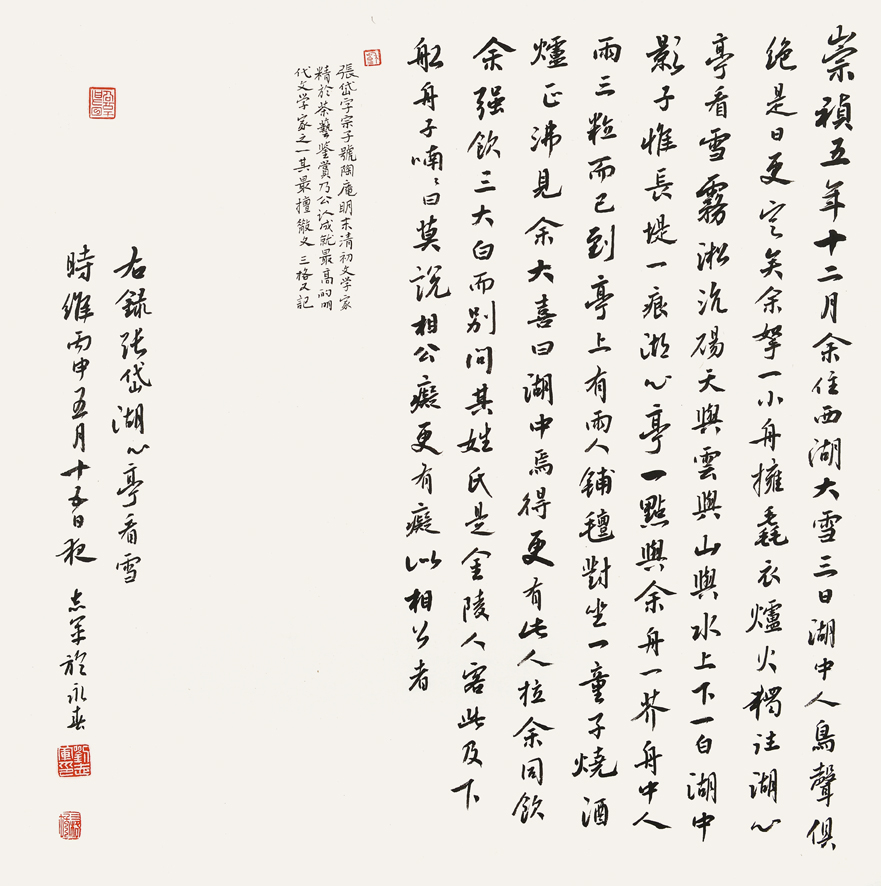 崇禎五年十二月余住西湖大雪三日湖中人鳥聲俱
絕是日更定矣余拏一小舟擁毳衣爐火獨往湖心
亭看雪霧淞沆碭天與雲與山與水上下一白湖中
影子惟長堤一痕湖心亭一點與余舟一芥舟中人
兩三粒而已到亭上有兩人鋪氊對坐一童子燒酒
爐正沸見余大喜曰湖中焉得更有此人拉余同飲
余强飲三大白而別問其姓氏是金陵人客此及下
舩舟子喃〻曰莫說相公癡更有癡似相公者
張岱字宗子號陶庵明末清初文学家
精於茶藝鉴賞乃公认成就最高的明
代文学家之一其最擅散文 三格又記
右録張岱湖心亭看雪
時維丙申五月十五日夜 志軍於永春